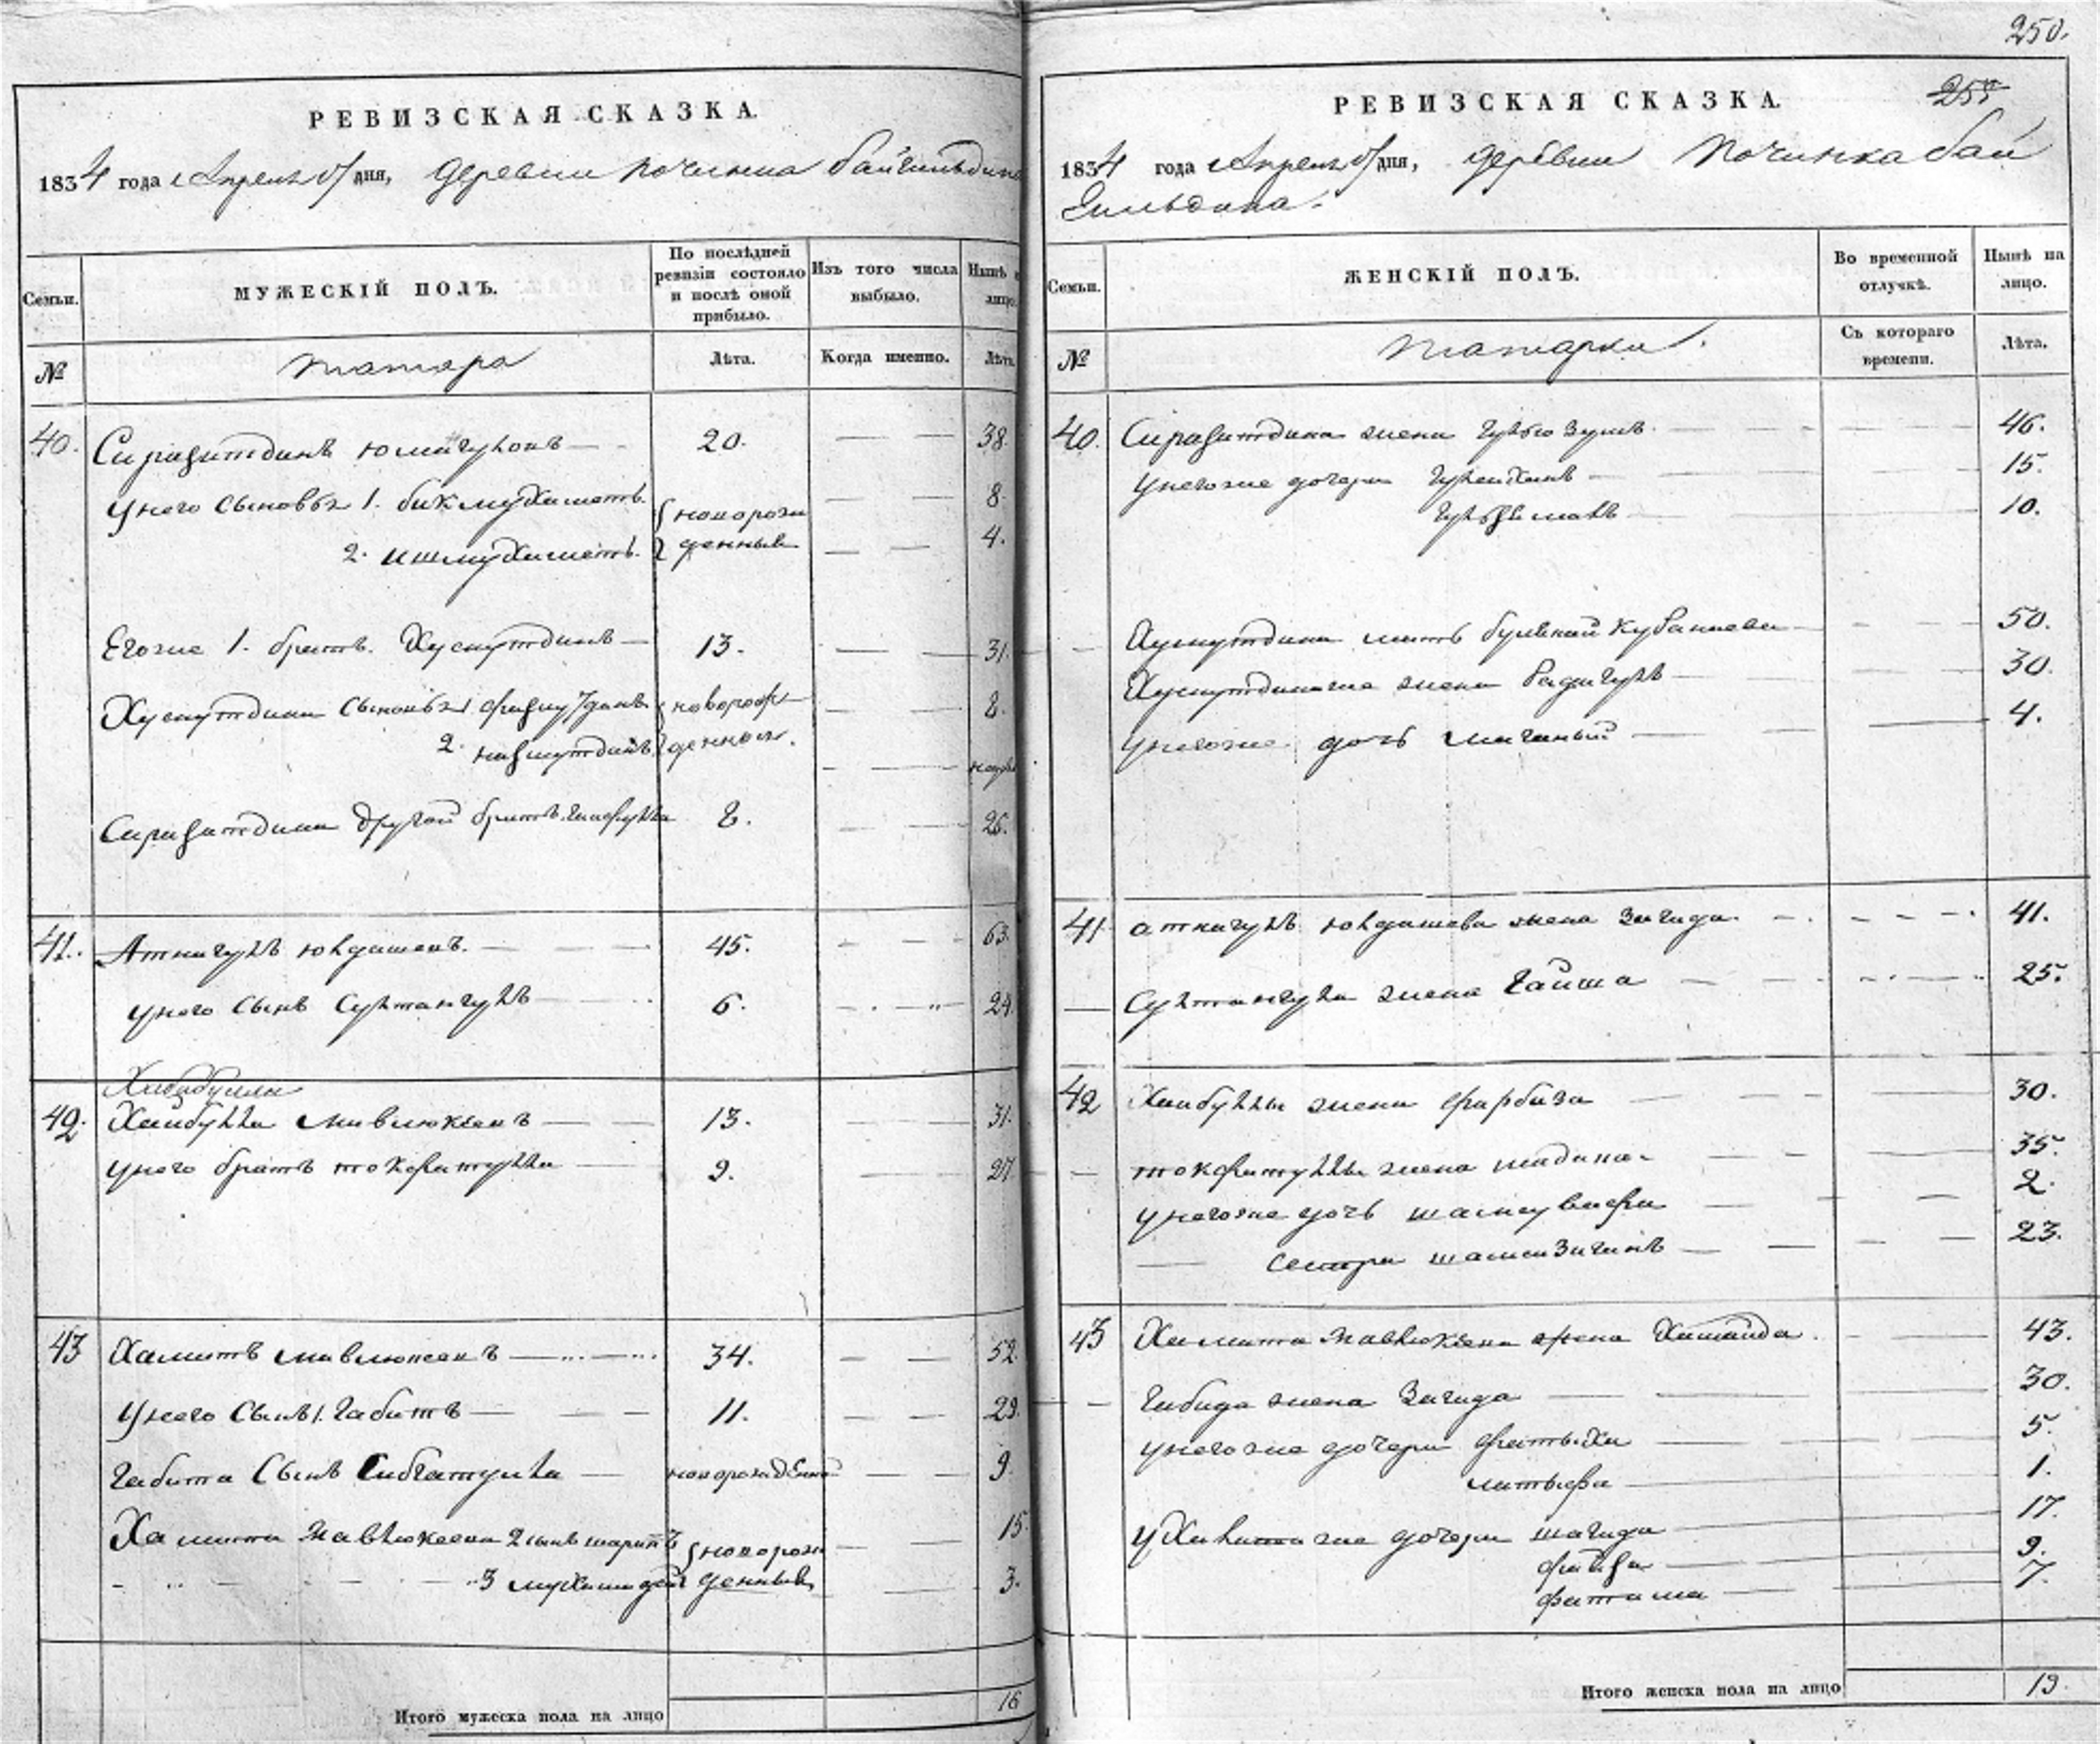 250.
РЕВИЗСКАЯ СКАЗКА.
1834 года Апреля дня, деревни починка байгильдина
Семьи.
МУЖЕСКІЙ ПОЛЪ.
По послѣдней ревизіи состояло и послѣ оной прибыло.
Изъ того числа выбыло.
Нынѣ на лицо.
№
татара
Лѣта.
Когда именно.
Лѣта.
40. Сиразитдинъ юмагуловъ 20. 38.
У него сыновья 1. бикмухаметъ новорож 8
2. ишмухаметъ. денныя 4.
Его же 1. братъ. Хуснутдинъ 13. 31.
Хуснутдина сыновья 1 новорож 8.
2. денныя.
Сиразитдина другой братъ 8. 26.
41. Аткагулъ юлдашевъ. 45. 63.
у него сынъ Султангулъ 6. 24.
Хибибулли
42. Хаибулла мавлюкеевъ 13. 31.
У него братъ токфатулла 9. 27
43 Хамитъ мавлюкеевъ 34. 52.
У него сынъ 1. Габитъ 11. 29.
Габита сынъ Сибгатулла новорожденной 9.
Хамита Мавлюкеева 2 сынъ шарипъ новорож 15.
3 денныя 3.
Итого мужеска пола на лицо 16
РЕВИЗСКАЯ СКАЗКА. 255
1834 года Апреля дня, деревни Починка бай
гильдина.
Семьи.
ЖЕНСКІЙ ПОЛЪ.
Во временной отлучкѣ.
Нынѣ на лицо.
№
татарки.
Съ котораго времени.
Лѣта.
40. Сиразитдина жена 46.
у него же дочери 15.
10.
Хуснутдина мать 50.
Хуснутдина же жена бадигулъ 30.
у него же дочь 4.
41 аткагулъ юлдашева жена Загида 41.
Султангула жена Гайша 25.
42 Хаибуллы жена фарбиза 30.
токфатуллы жена мадина 35.
у него же дочь 2.
сестра 23.
43 Хамита Мавлюкеева жена 43.
Габида жена Загида 30.
у него же дочери фатыха 5.
латыфа 1.
у Хамита же дочери шагида 17.
фаиза 9.
фатима 7.
Итого женска пола на лицо 19